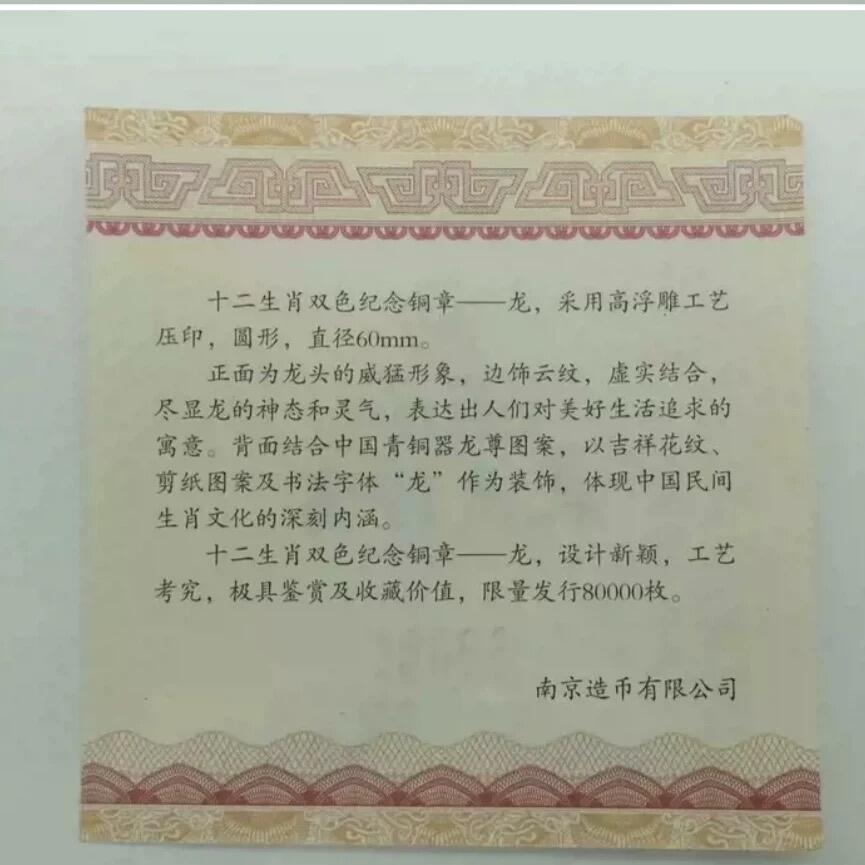 十二生肖双色纪念铜章——龙，采用高浮雕工艺
压印，圆形，直径60mm。
正面为龙头的威猛形象，边饰云纹，虚实结合，
尽显龙的神态和灵气，表达出人们对美好生活追求的
寓意。背面结合中国青铜器龙尊图案，以吉祥花纹、
剪纸图案及书法字体“龙”作为装饰，体现中国民间
生肖文化的深刻内涵。
十二生肖双色纪念铜章——龙，设计新颖，工艺
考究，极具鉴赏及收藏价值，限量发行80000枚。
南京造币有限公司